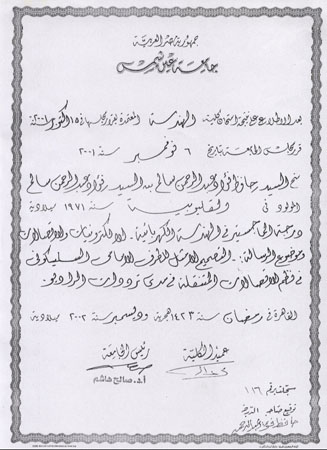 جمهورية مصر العربية
جامعة عين شمس
بعد الاطلاع على نتيجة امتحان كلية الهندسة المعتمدة بقرار مجلسها في ١٥ اكتوبر
قرر مجلس الجامعة بتاريخ ٦ نوفمبر سنة ٢٠٠١
منح السيد حافظ فؤاد عبد الرحمن سالم بن السيد فؤاد عبد الرحمن سالم
المولود في القليوبية سنة ١٩٧١ ميلادية
درجة الماجستير في الهندسة الكهربائية الالكترونيات والاتصالات
وموضوع الرسالة: التصميم الأمثل للطرف الأمامي السلسكوني
في نظم الاتصالات المتنقلة في مدى ترددات الراديو
القاهرة في رمضان سنة ١٤٢٣ هجرية وديسمبر سنة ٢٠٠٢ ميلادية
عميد الكلية رئيس الجامعة
أ.د. صالح هاشم
سجلت برقم ١١٦
توقيع صاحب الدرجة